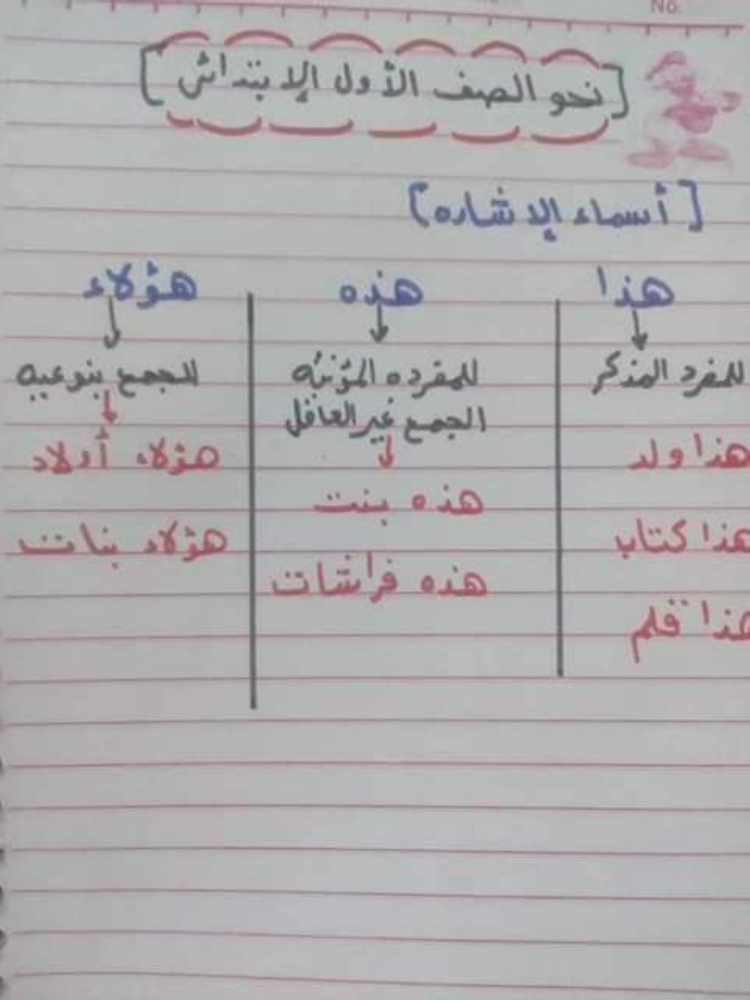 No.
[نحو الصف الأول الإبتدائى]
[أسماء الإشاره]
هذا
للمفرد المذكر
هذا ولد
هذا كتاب
هذا قلم
هذه
للمفرده المؤنثه
الجمع غير العاقل
هذه بنت
هذه فراشات
هؤلاء
للجمع بنوعيه
هؤلاء أولاد
هؤلاء بنات